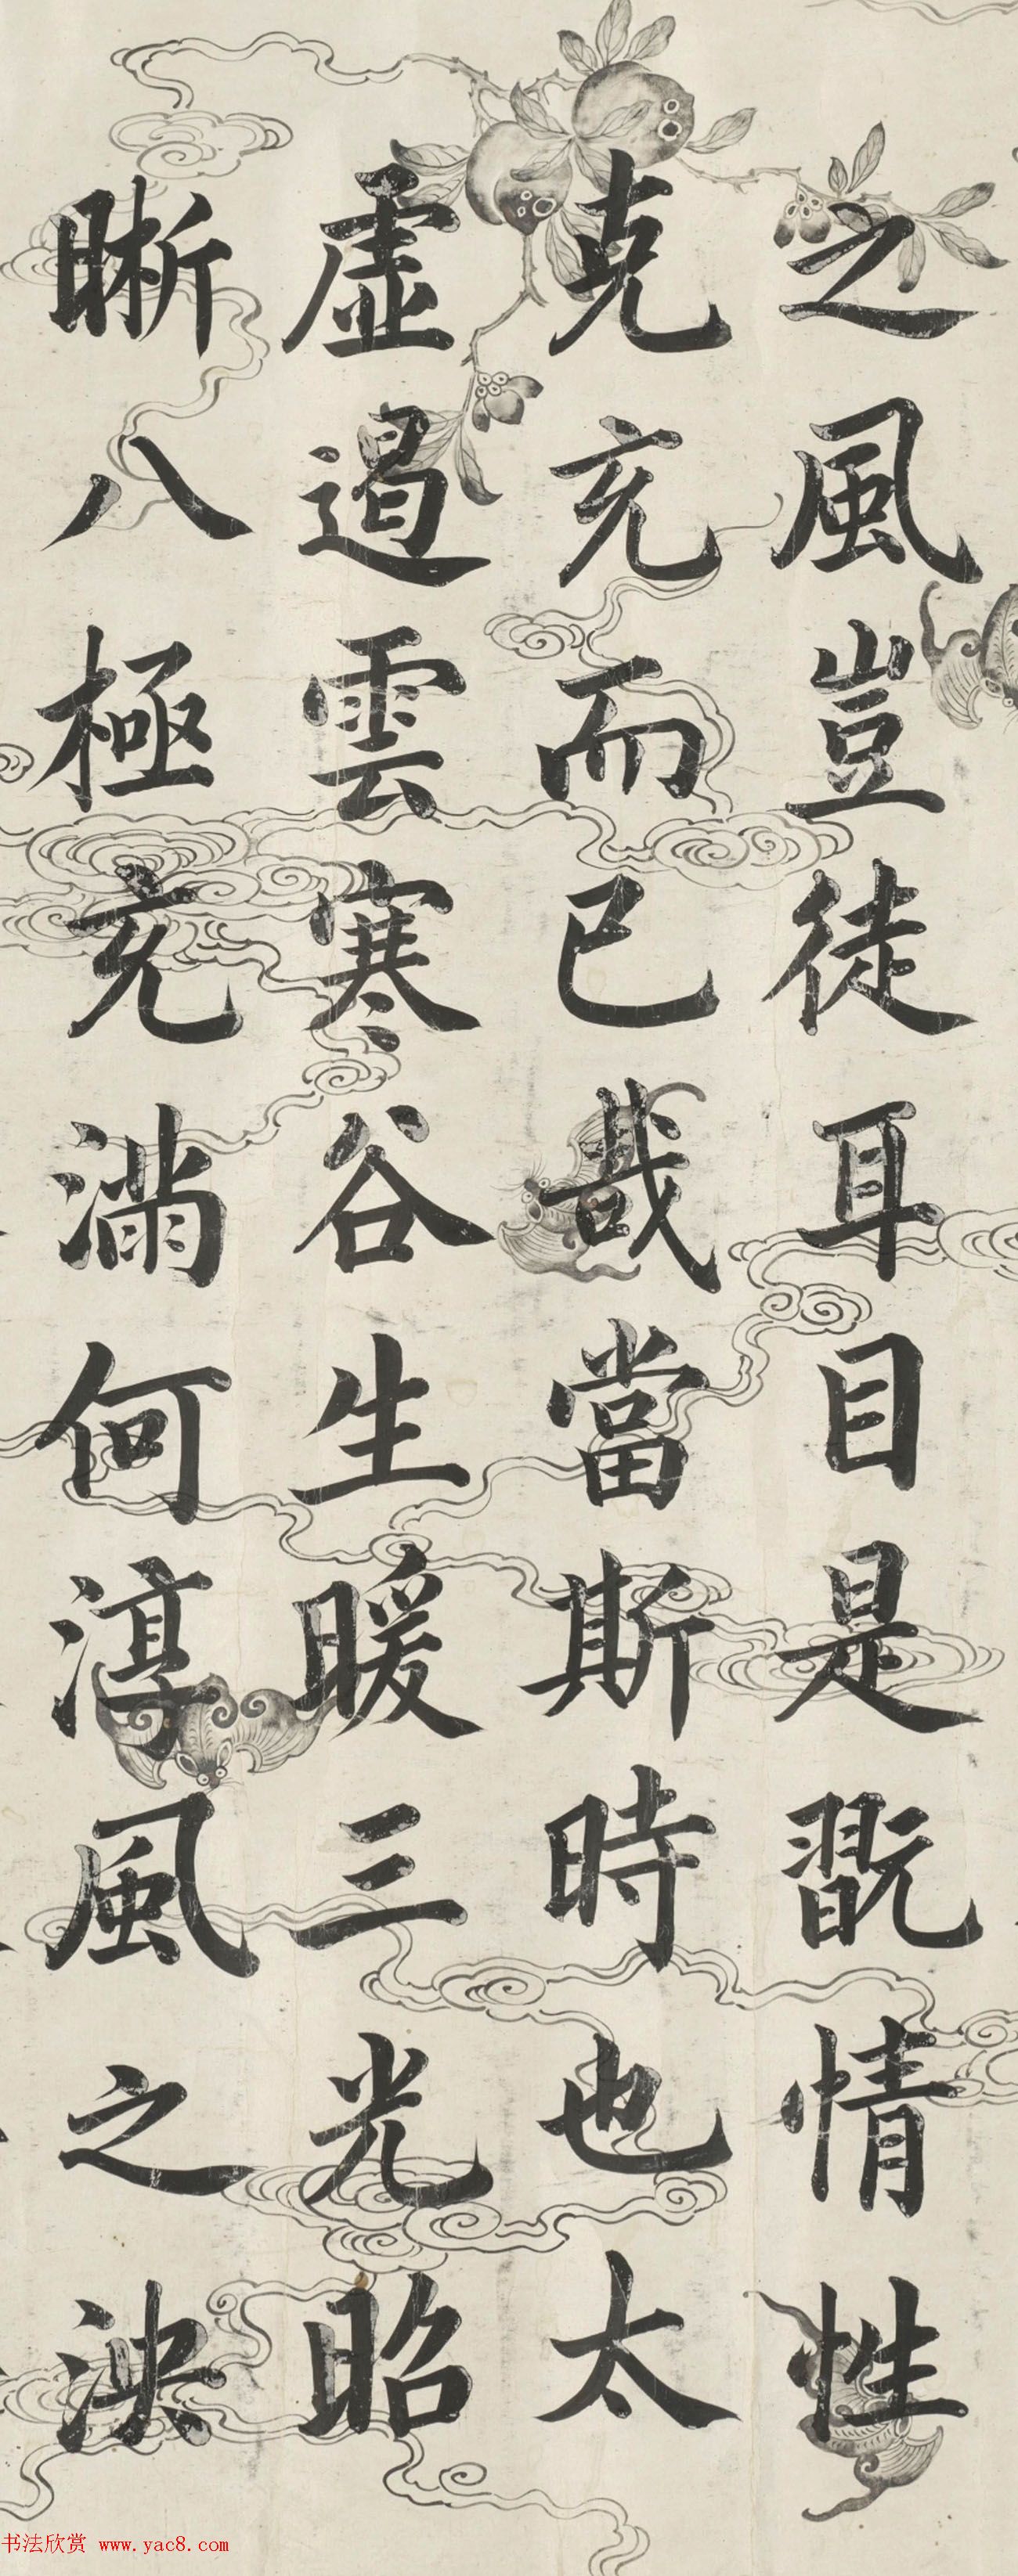 之風豈徒耳目是翫情性
克充而已哉當斯時也太
虛遏雲寒谷生暖三光昭
晰八極充滿何淳風之浹
书法欣赏 www.yac8.com